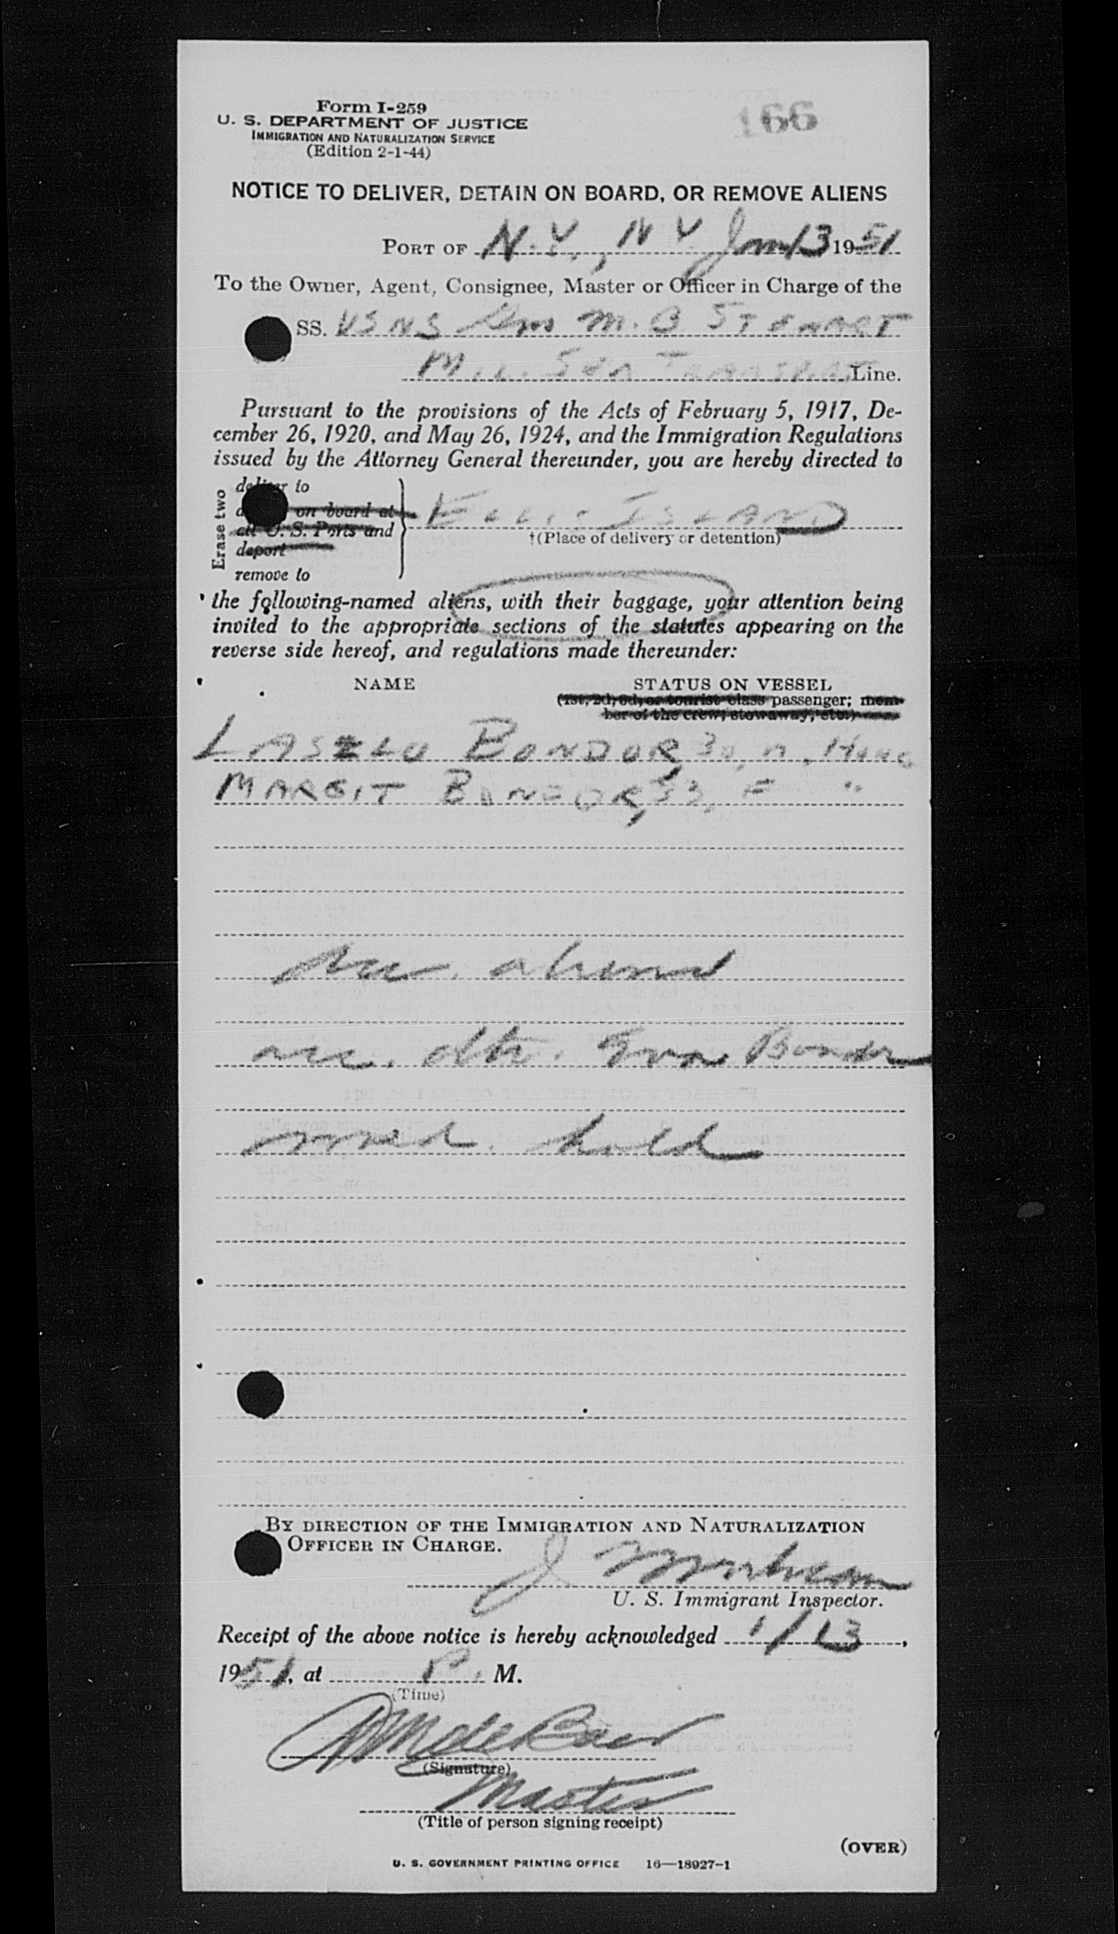 Form I-259
U. S. DEPARTMENT OF JUSTICE
IMMIGRATION AND NATURALIZATION SERVICE
(Edition 2-1-44)
166
NOTICE TO DELIVER, DETAIN ON BOARD, OR REMOVE ALIENS
PORT OF N.Y., N Y Jan 13 1951
To the Owner, Agent, Consignee, Master or Officer in Charge of the
SS. USNS Gen M. B STEWART
MIL. SEA TRANSPORT Line.
Pursuant to the provisions of the Acts of February 5, 1917, De-
cember 26, 1920, and May 26, 1924, and the Immigration Regulations
issued by the Attorney General thereunder, you are hereby directed to
Erase two
deliver to
on board at
all U. S. Ports and
deport
remove to
ELLIS ISLAND
†(Place of delivery or detention)
the following-named aliens, with their baggage, your attention being
invited to the appropriate sections of the statutes appearing on the
reverse side hereof, and regulations made thereunder:
NAME STATUS ON VESSEL
(1st, 2d, 3d, or tourist class passenger; mem-
ber of the crew, stowaway, etc.)
LASZLO BONDOR, 30, M, HUNG
MARGIT BONDOR, 33, F "
acc. aliend
acc. dtr. Eva Bondor
med. hold
BY DIRECTION OF THE IMMIGRATION AND NATURALIZATION
OFFICER IN CHARGE.
J
U. S. Immigrant Inspector.
Receipt of the above notice is hereby acknowledged 1/13,
1951, at P. M.
(Time)
de Baer
(Signature)
Master
(Title of person signing receipt)
(OVER)
U. S. GOVERNMENT PRINTING OFFICE 16—18927-1